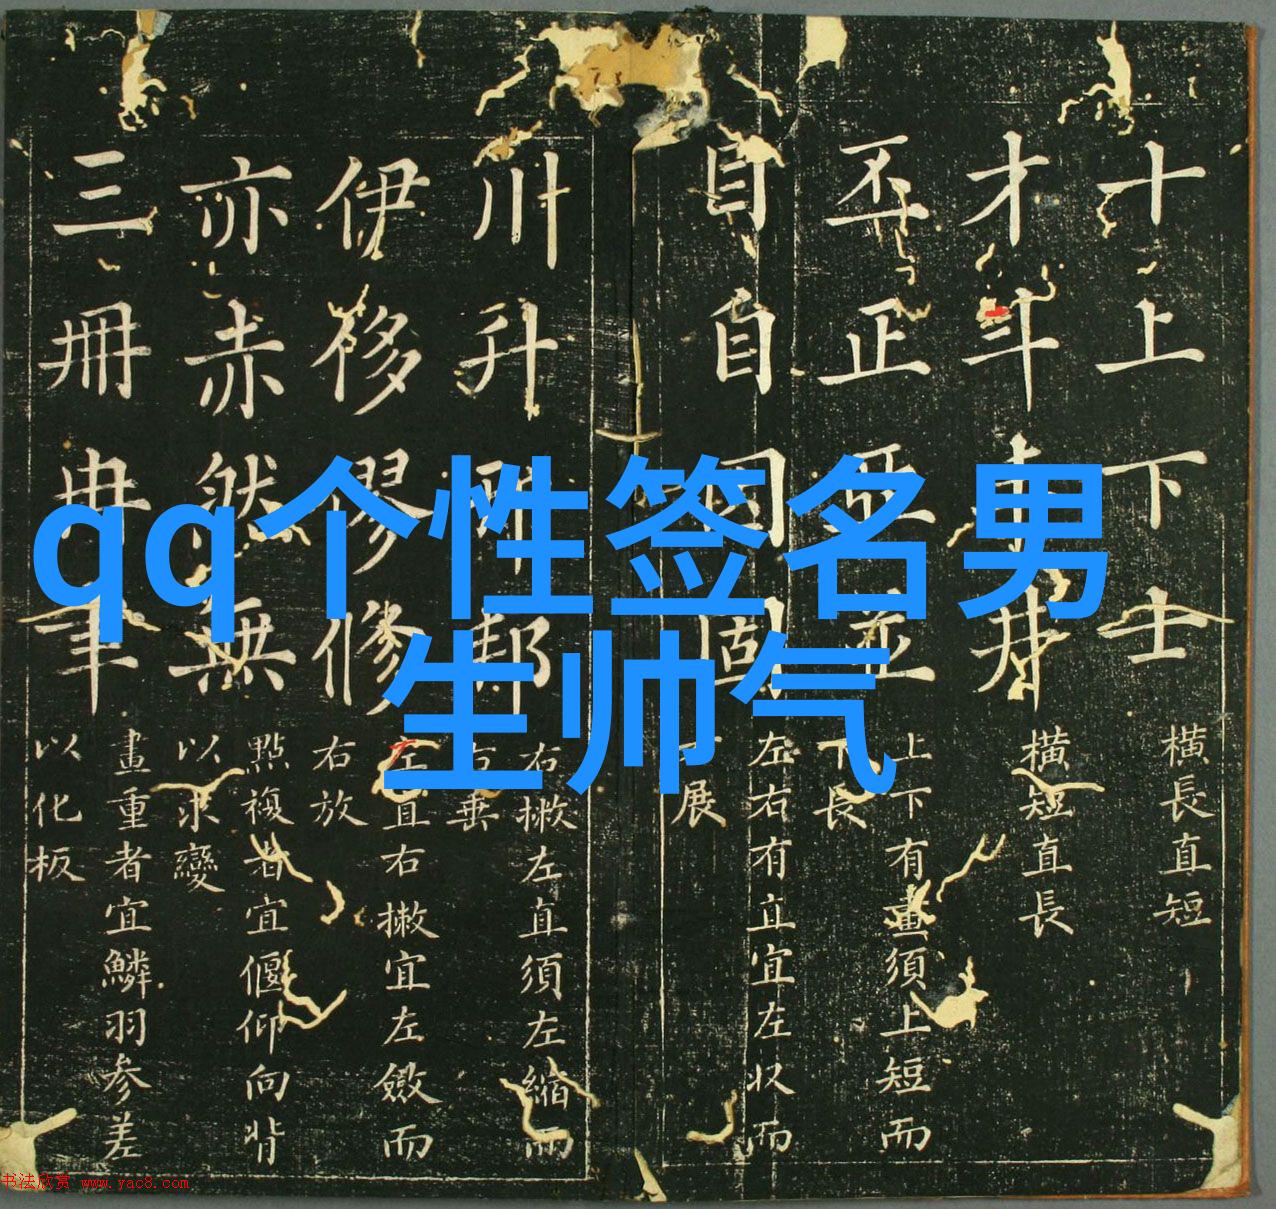 qq个性签名男
生帅气
十上下士
横長直短
才斗井
横短直長
丕正亞並
上下有畫須上短而
下長
目自因固
左右有直宜左收而
展
川升邦
右撇左直須左縮而
右垂
伊侈修
左直右撇宜左斂而
右放
亦赤然無
點複者宜偃仰向背
以求變
三冊冉聿
畫重者宜鱗羽参差
以化板
书法欣赏 www.yac8.com